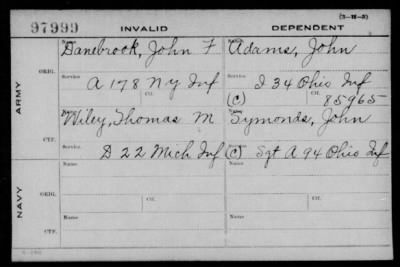 97999 INVALID DEPENDENT (3-18-3)
ARMY
ORIG.
Name Danebrook, John F
Name Adams, John
Service A 178 N Y Inf
Service I 34 Ohio Inf
Ctf. Ctf.
(C) 85965
CTF.
Name Wiley, Thomas M
Name Symonds, John
D 22 Mich Inf
(C) Sgt A 94 Ohio Inf
NAVY
ORIG.
Name Name
Service Service
Ctf. Ctf.
CTF.
Name Name